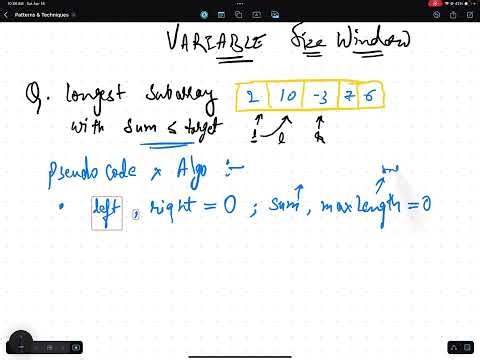 10:30 AM Sat Apr 18
Patterns & Techniques
VARIABLE Size Window
Q. Longest Subarray 2 10 -3 7 6
with Sum ≤ target
Pseudo code × Algo :-
• left, right = 0 ; sum, maxLength = 0